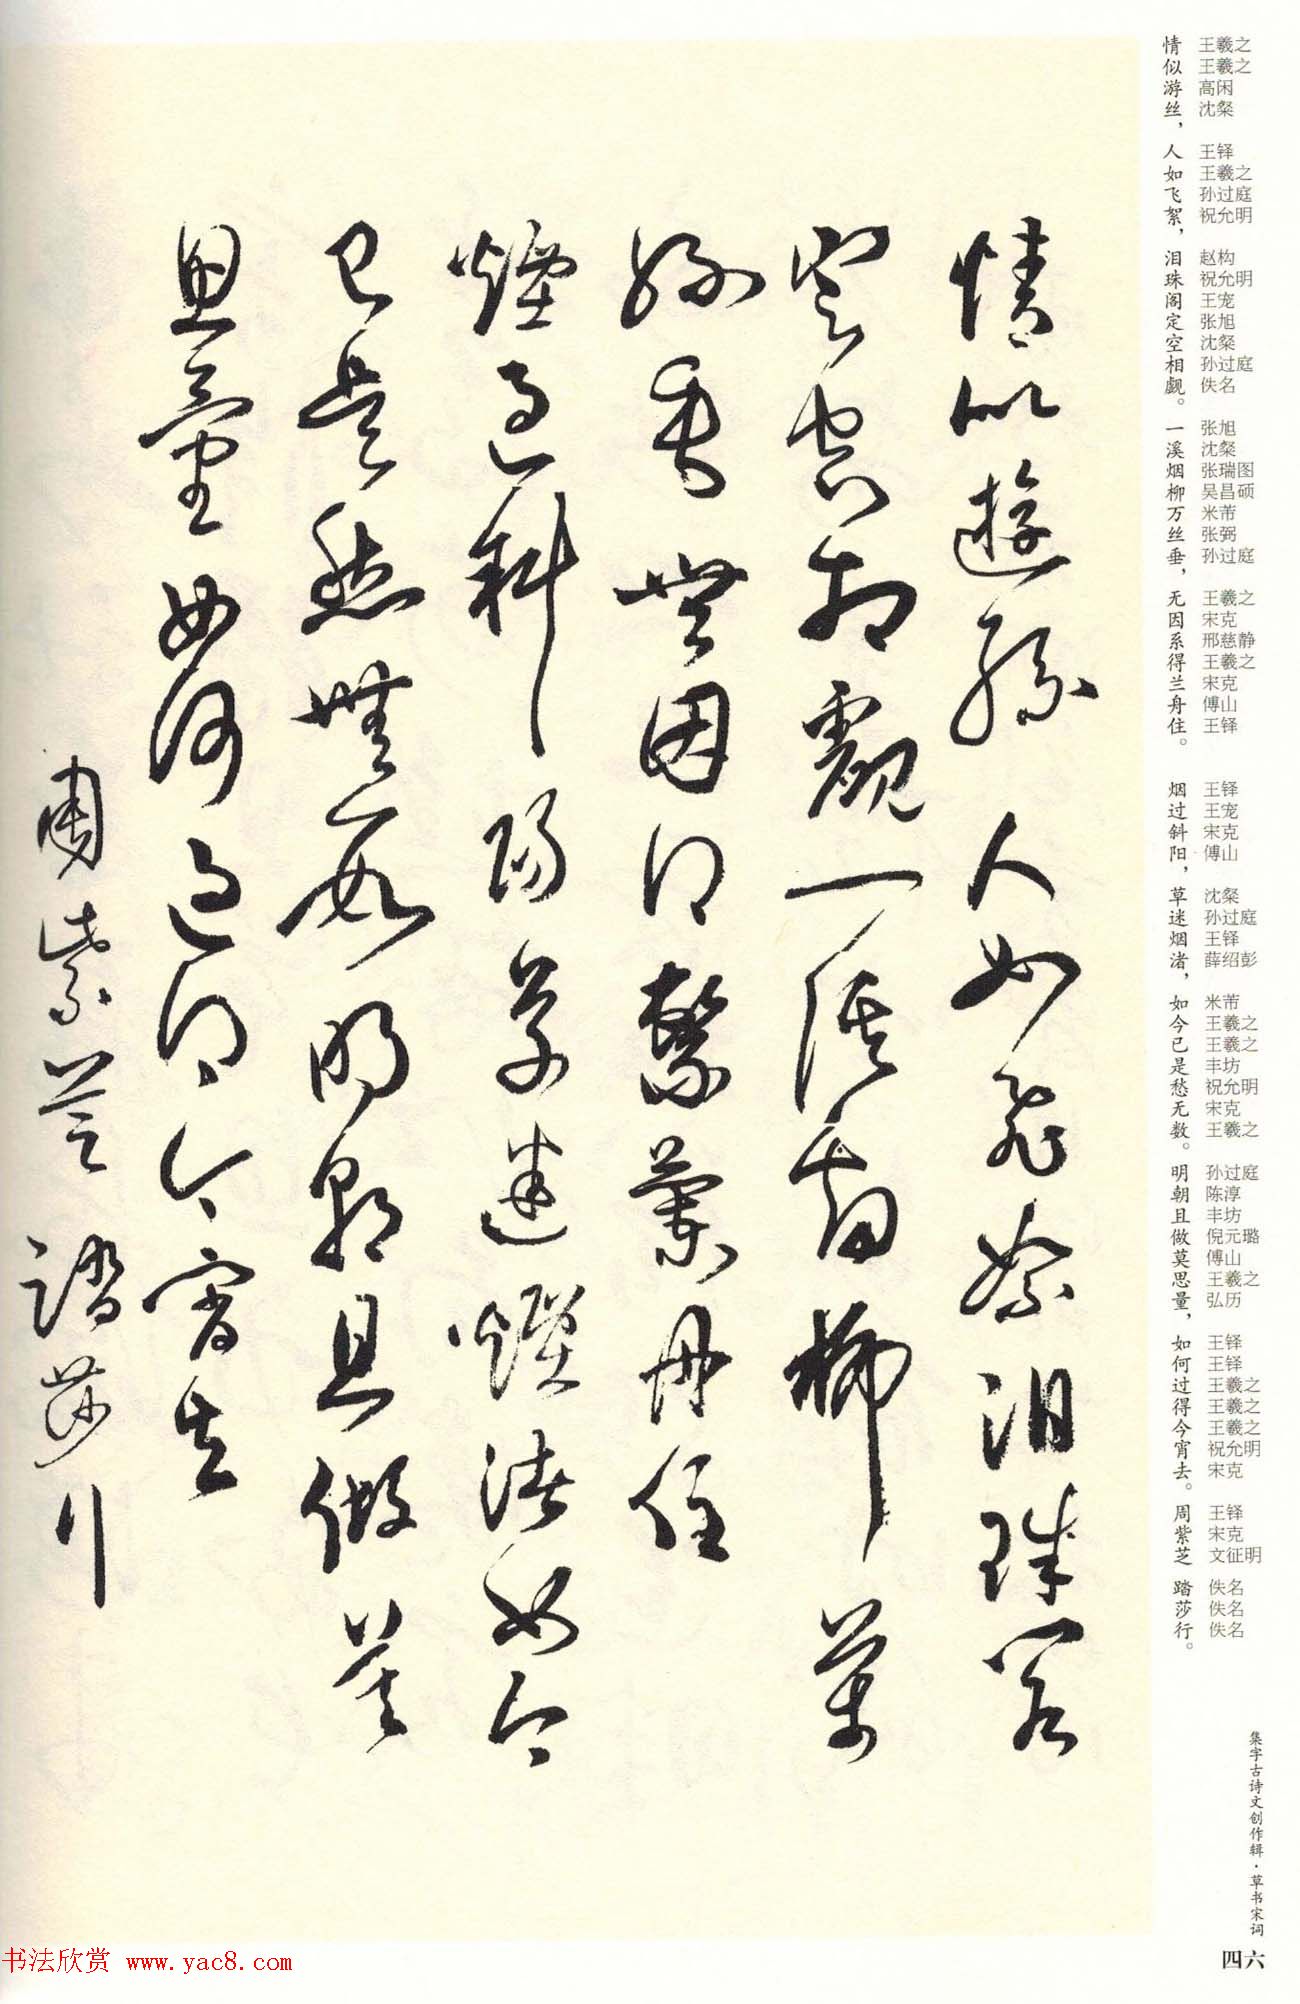 情似遊絲人如飛絮泪珠閣
定空相覷一溪烟柳萬
絲垂無因得繫蘭舟住
煙過斜陽草迷煙渚如今
已是愁無數明朝且做莫
思量如何過得今宵去
周紫芝踏莎行
情似游丝，人如飞絮，泪珠阁定空相觑。一溪烟柳万丝垂，无因系得兰舟住。 烟过斜阳，草迷烟渚，如今已是愁无数。明朝且做莫思量，如何过得今宵去。周紫芝 踏莎行。
王羲之 王羲之 高闲 沈粲 王铎 王羲之 孙过庭 祝允明 赵构 祝允明 王宠 张旭 沈粲 孙过庭 佚名 张旭 沈粲 张瑞图 吴昌硕 米芾 张弼 孙过庭 王羲之 宋克 邢慈静 王羲之 宋克 傅山 王铎 王铎 王宠 宋克 傅山 沈粲 孙过庭 王铎 薛绍彭 米芾 王羲之 王羲之 丰坊 祝允明 宋克 王羲之 孙过庭 陈淳 丰坊 倪元璐 傅山 王羲之 弘历 王铎 王铎 王羲之 王羲之 王羲之 祝允明 宋克 王铎 宋克 文征明 佚名 佚名 佚名
集字古诗文创作辑·草书宋词
四六
书法欣赏 www.yac8.com